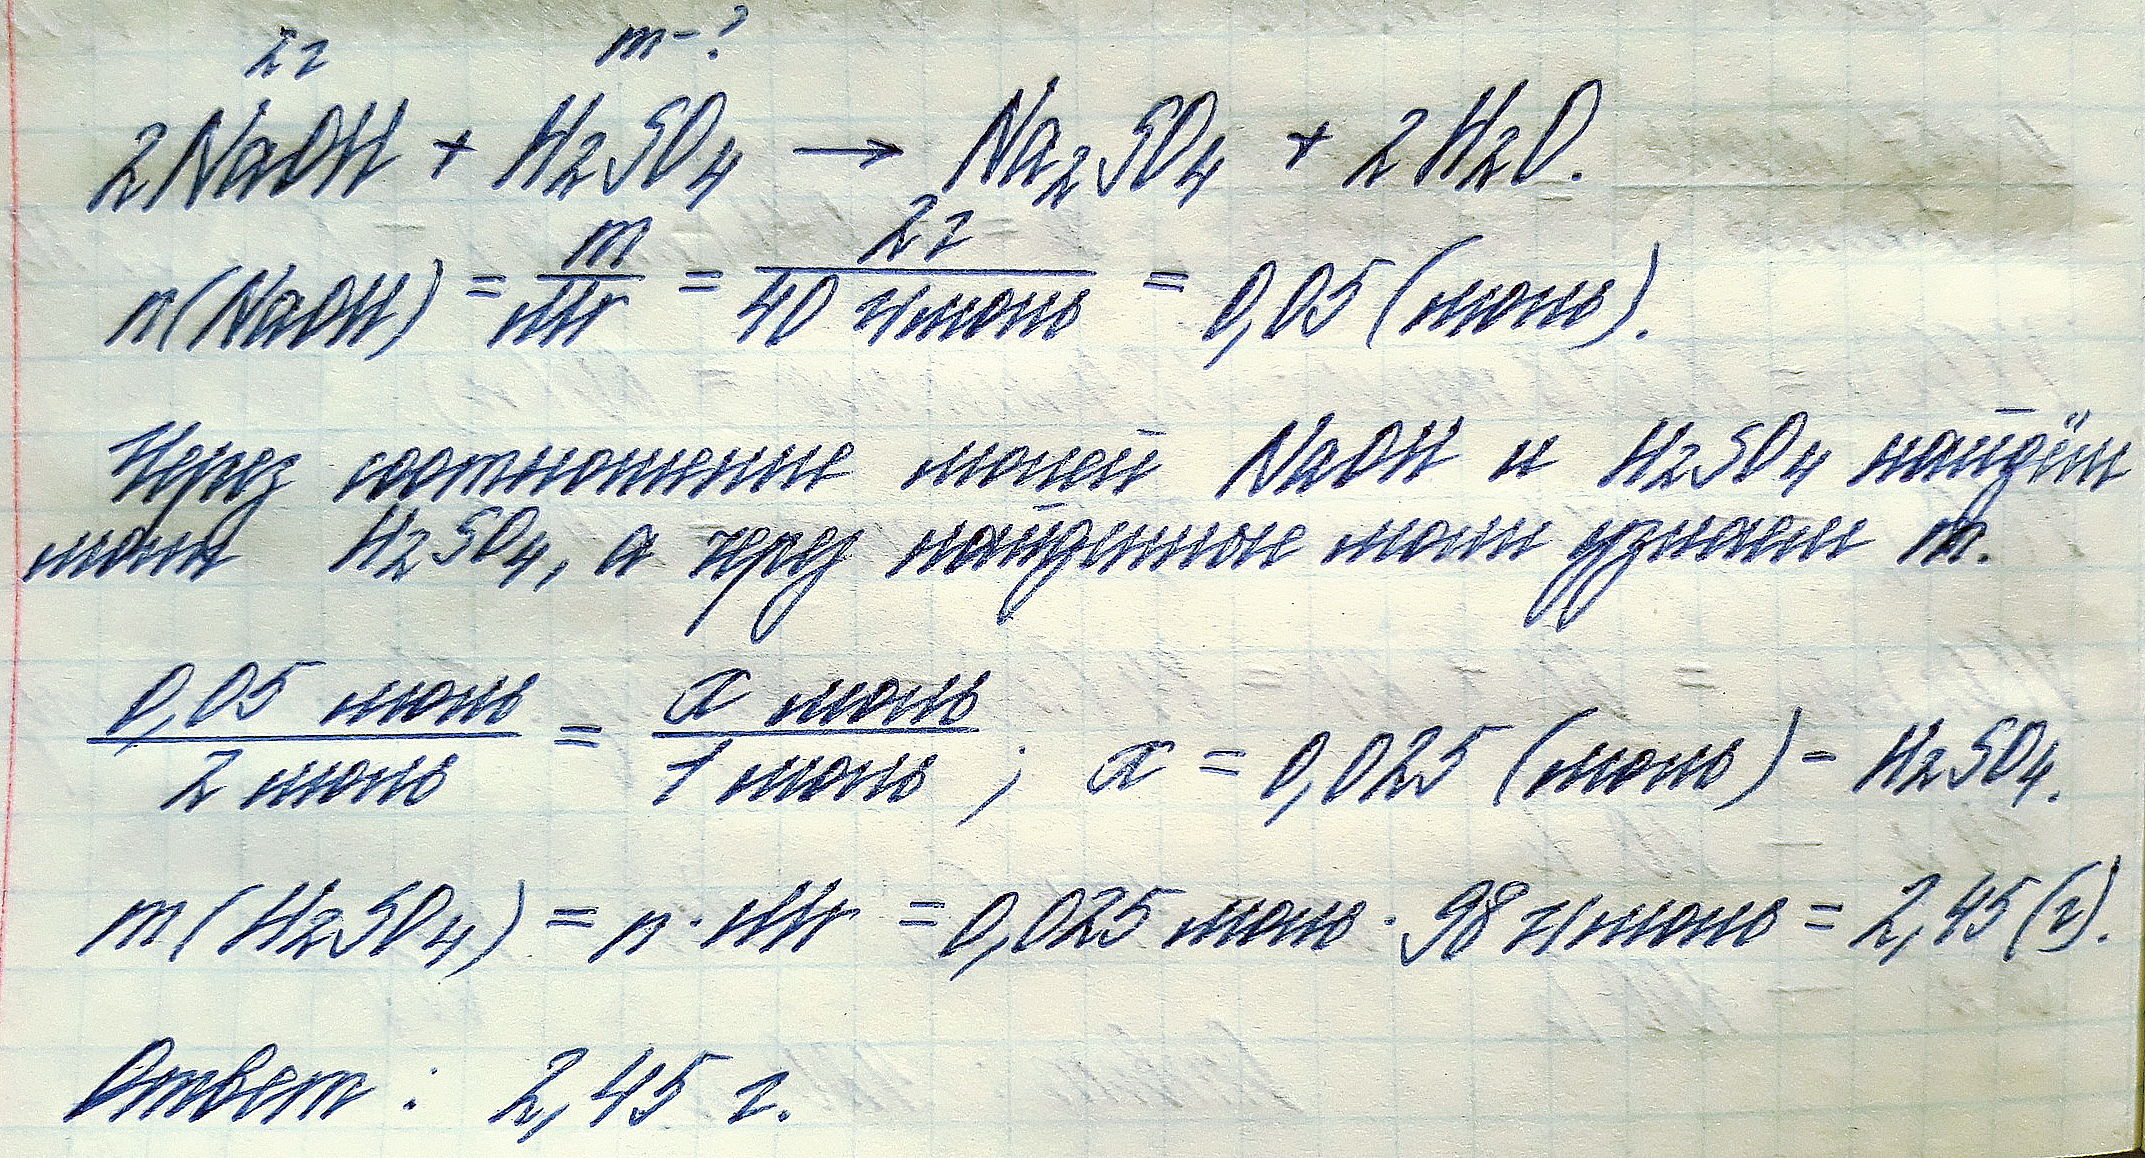 2г m-?
2NaOH + H₂SO₄ → Na₂SO₄ + 2H₂O.
n(NaOH) = m/Mr = 2г/40 г/моль = 0,05 (моль).
Через соотношение молей NaOH и H₂SO₄ найдём
моли H₂SO₄, а через найденные моли узнаем m.
0,05 моль/2 моль = x моль/1 моль ; x = 0,025 (моль) - H₂SO₄.
m(H₂SO₄) = n · Mr = 0,025 моль · 98 г/моль = 2,45 (г).
Ответ : 2,45 г.